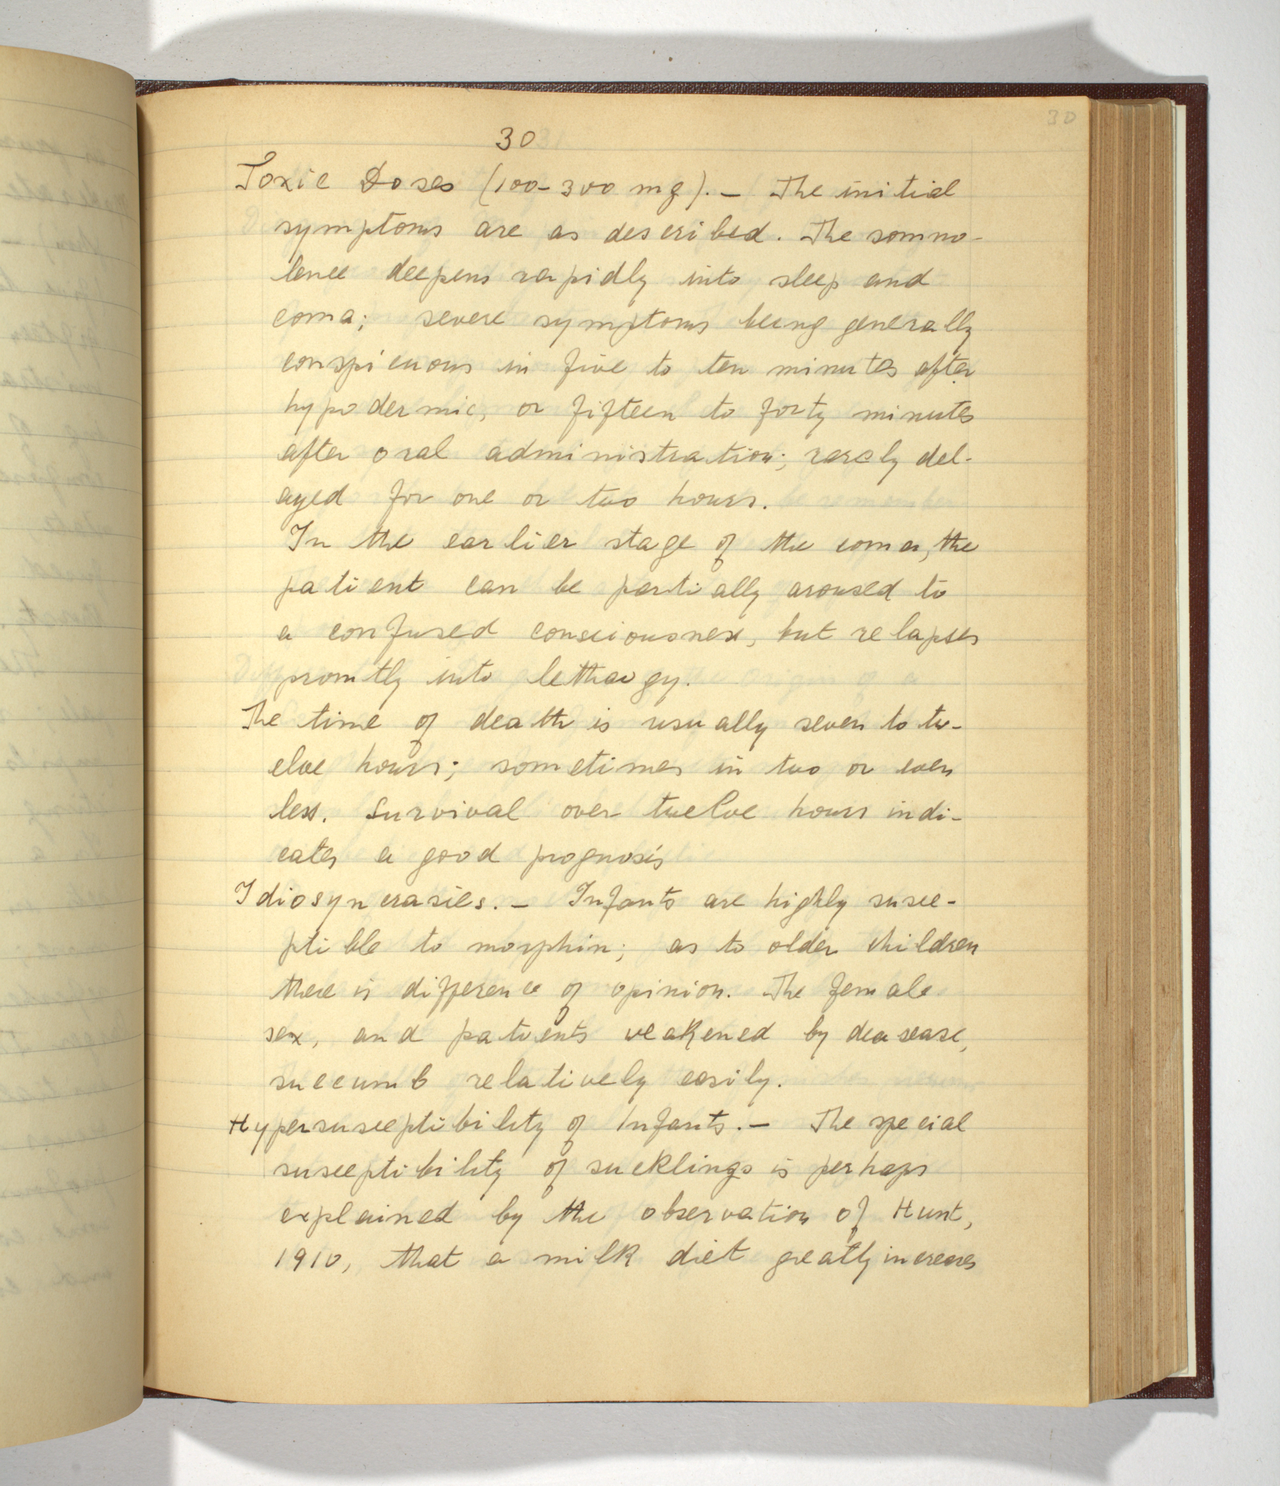 30
30
Toxic Doses (100-300 mg). — The initial
symptoms are as described. The somno-
lence deepens rapidly into sleep and
coma; severe symptoms being generally
conspicuous in five to ten minutes after
hypodermic, or fifteen to forty minutes
after oral administration; rarely del-
ayed for one or two hours.
In the earlier stage of the coma, the
patient can be partially aroused to
a confused consciousness, but relapses
promtly into lethargy.
The time of death is usually seven to tw-
elve hours; sometimes in two or even
less. Survival over twelve hours indi-
cates a good prognosis
Idiosyncrasies. — Infants are highly susce-
ptible to morphin; as to older children
there is difference of opinion. The female
sex, and patients weakened by deasease,
succumb relatively easily.
Hypersusceptibility of Infants. — The special
susceptibility of sucklings is perhaps
explained by the observation of Hunt,
1910, that a milk diet greatly increases